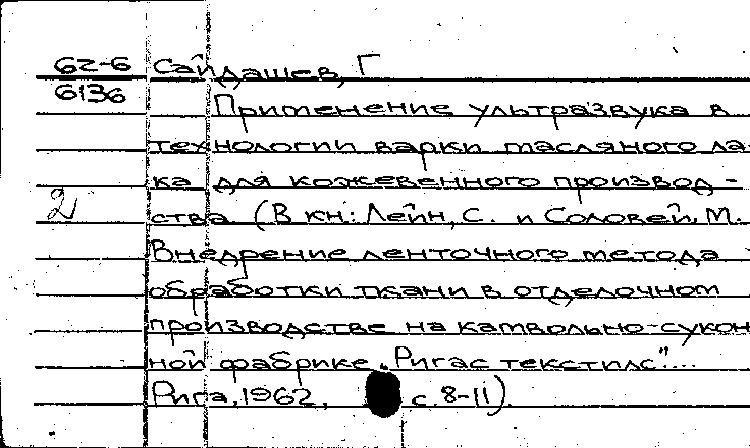 62-6 Сайдашев, Г
6136
Применение ультразвука в
технологии варки масляного ла-
ка для кожевенного производ-
2 ства (В кн: Лейн, С. и Соловей, М.
Внедрение ленточного метода
обработки ткани в отделочном
производстве на камвольно-сукон
ной фабрике „Ригас текстилс"...
Рига, 1962, с. 8-11).